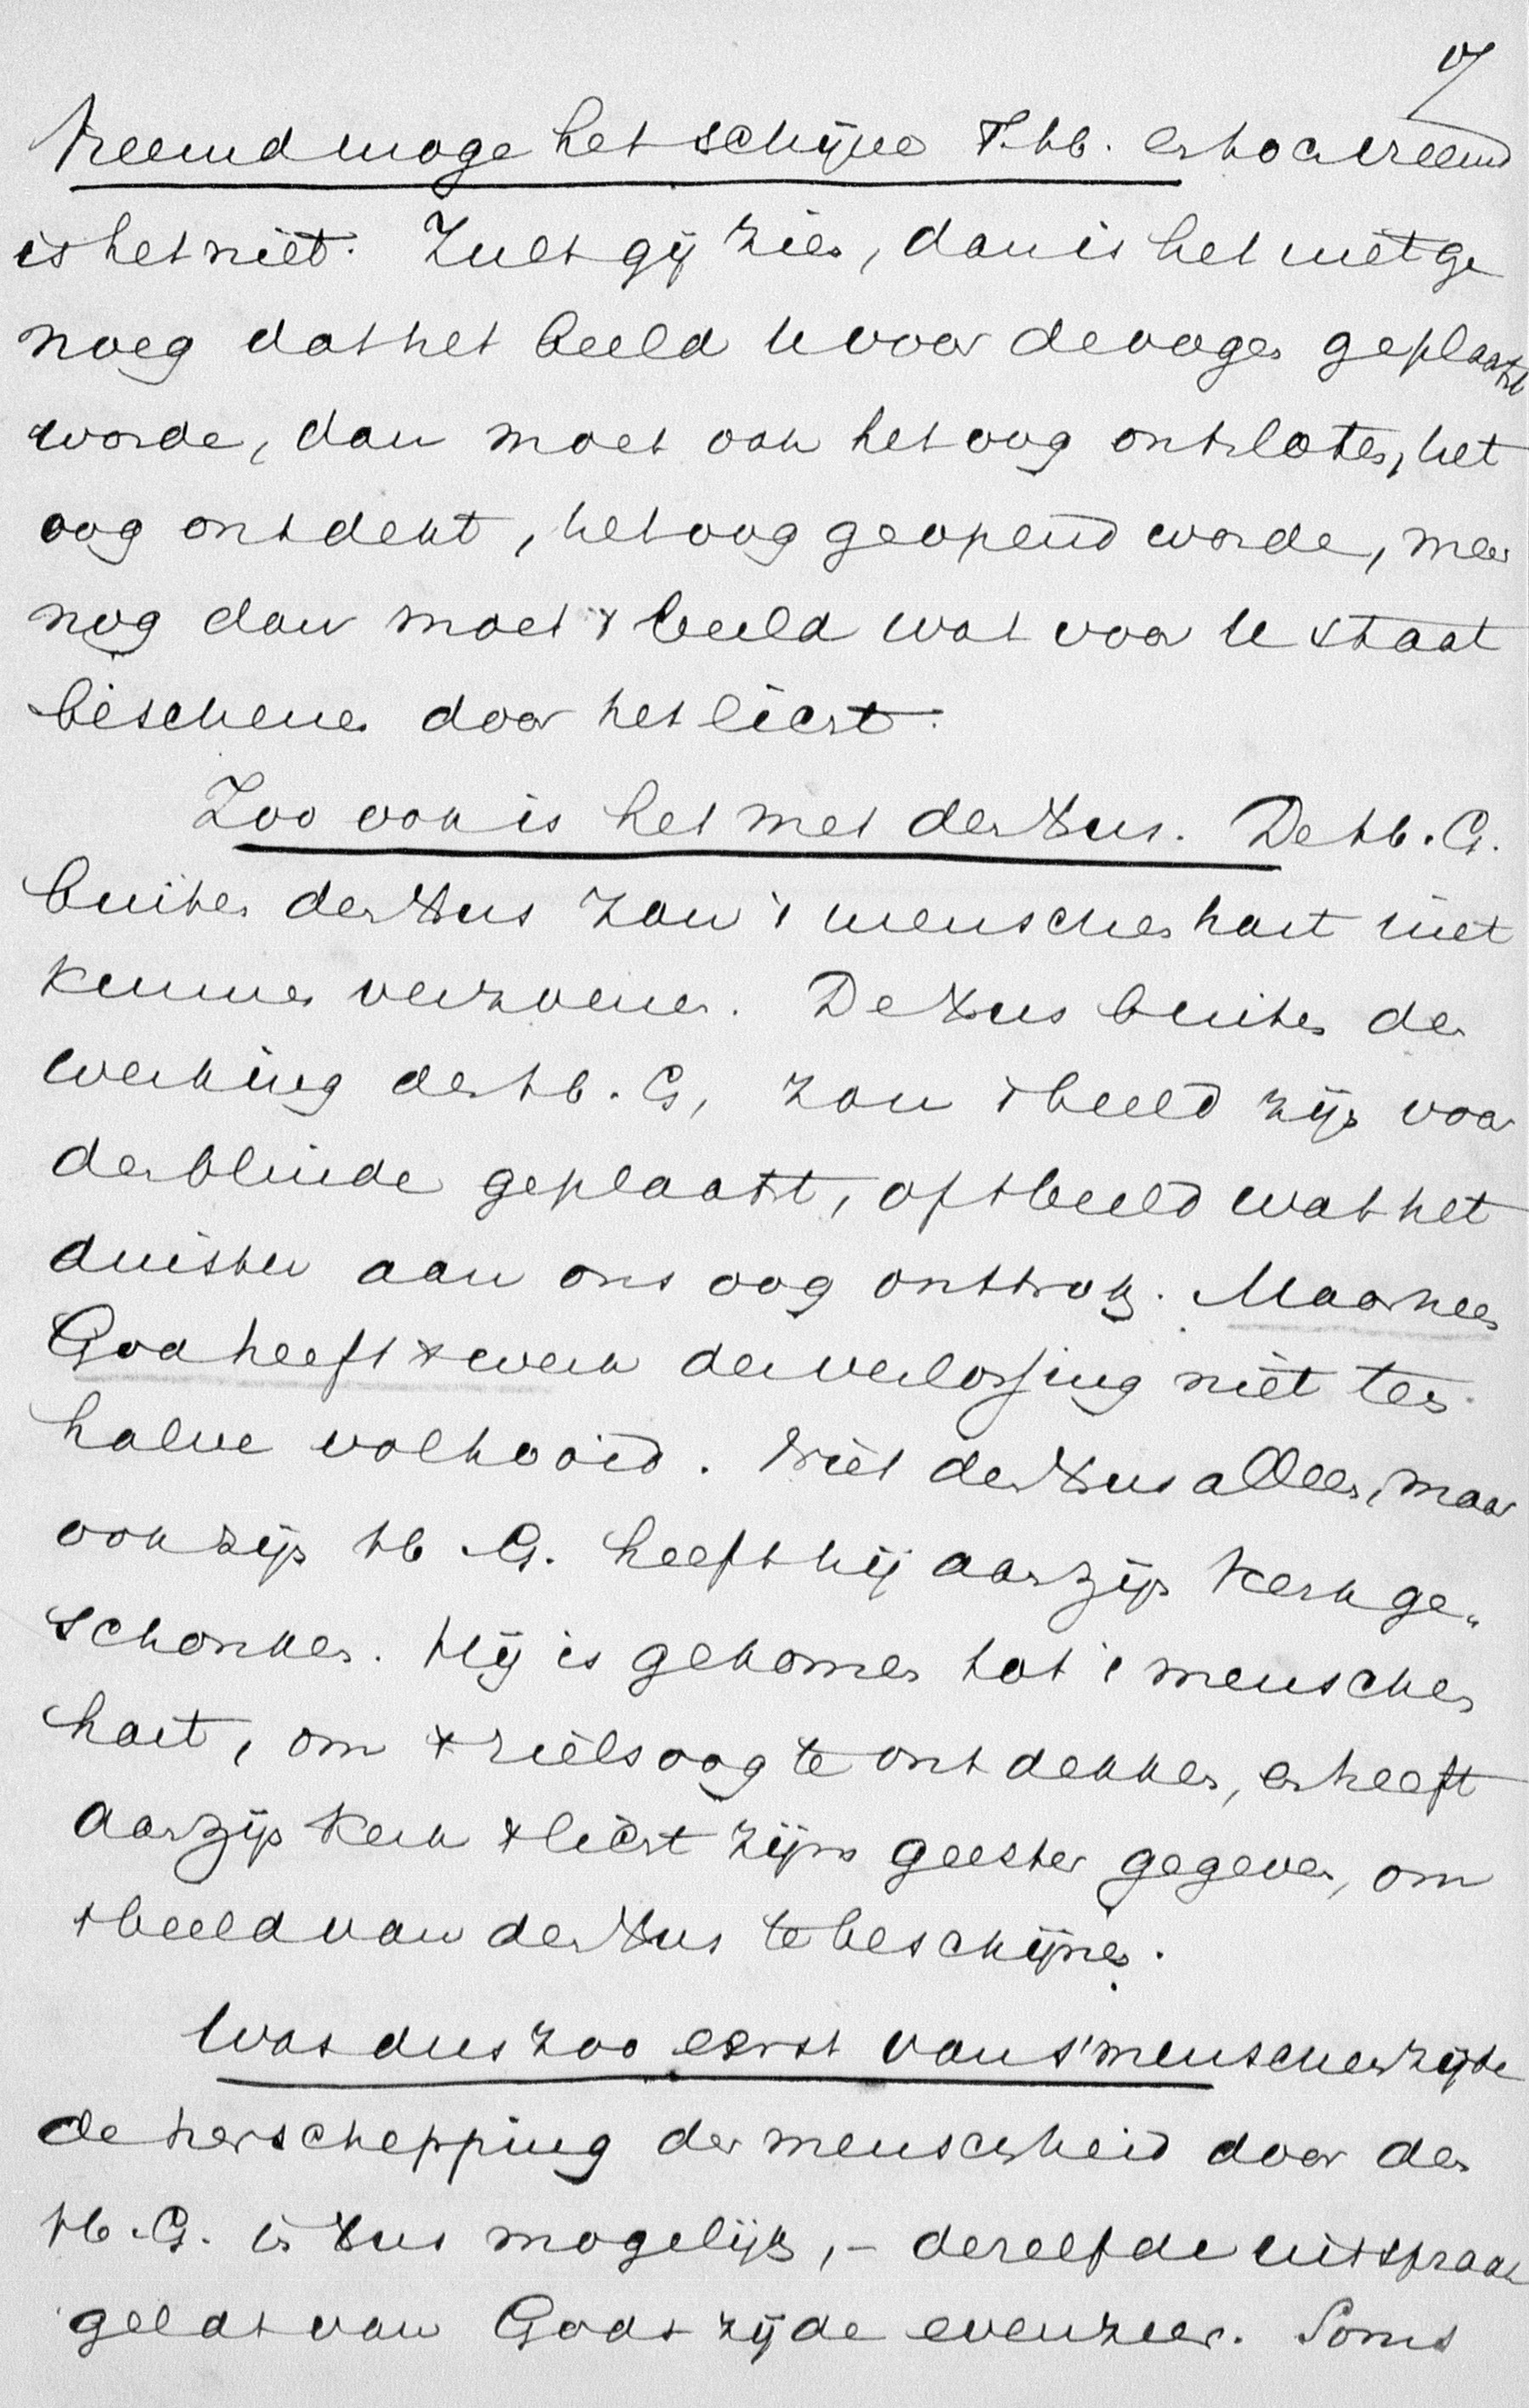 7
Vreemd moge het schijnen T.hb. en toch vreemd
is het niet. Zult gij zien, dan is het niet ge
noeg dat het beeld u voor de oogen geplaatst
worde, dan moet ook het oog ontsloten, het
oog ontdekt, het oog geopend worde, meer
nog dan moet 't beeld wat voor u staat
beschenen door het licht.
Zoo ook is het met den Xus. De Hb. G.
buiten den Xus zou 's menschen hart niet
kunnen verzoenen. De Xus buiten de
werking des Hb. G, zou 't beeld zijn voor
den blinde geplaatst, of 't beeld wat het
duister aan ons oog onttrok. Maar neen
God heeft 't werk der verlossing niet ten
halve voltooid. Niet den Xus alleen, maar
ook zijn Hb G. heeft hij aan zijn Kerk ge„
schonken. Hij is gekomen tot 's menschen
hart, om 't zielsoog te ontdekken, en heeft
aan zijn Kerk 't licht zijns geesten gegeven, om
't beeld van den Xus te beschijnen.
Was dus zoo eerst van s'menschen zijde
de herschepping der menschheid door den
Hb. G. in Xus mogelijk, - dezelfde uitspraak
geldt van Gods zijde evenzeer. Soms